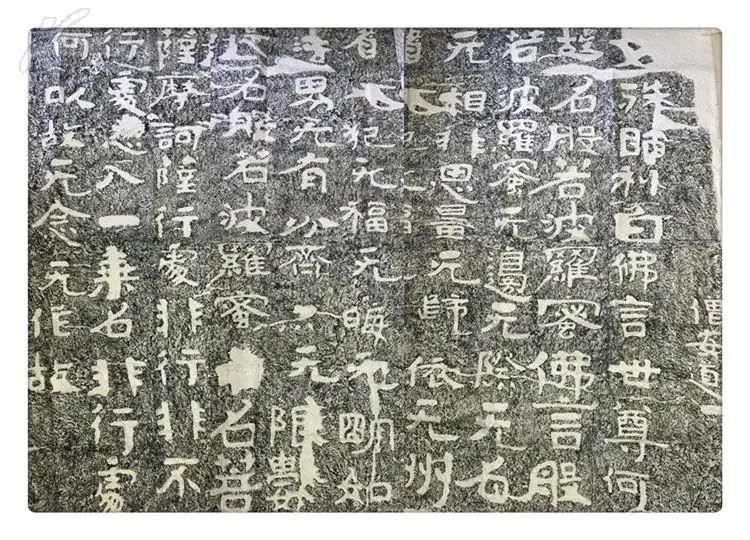 僧安道一
文殊師利白佛言世尊何
故名般若波羅蜜佛言般
若波羅蜜无邊无際无名
无相非思量无歸依无州
渚无犯无福无晦无明如
法界无有分齊亦无限數
是名般若波羅蜜亦名菩
薩摩訶薩行處非行非不
行處悉入一乘名非行處
何以故无念无作故